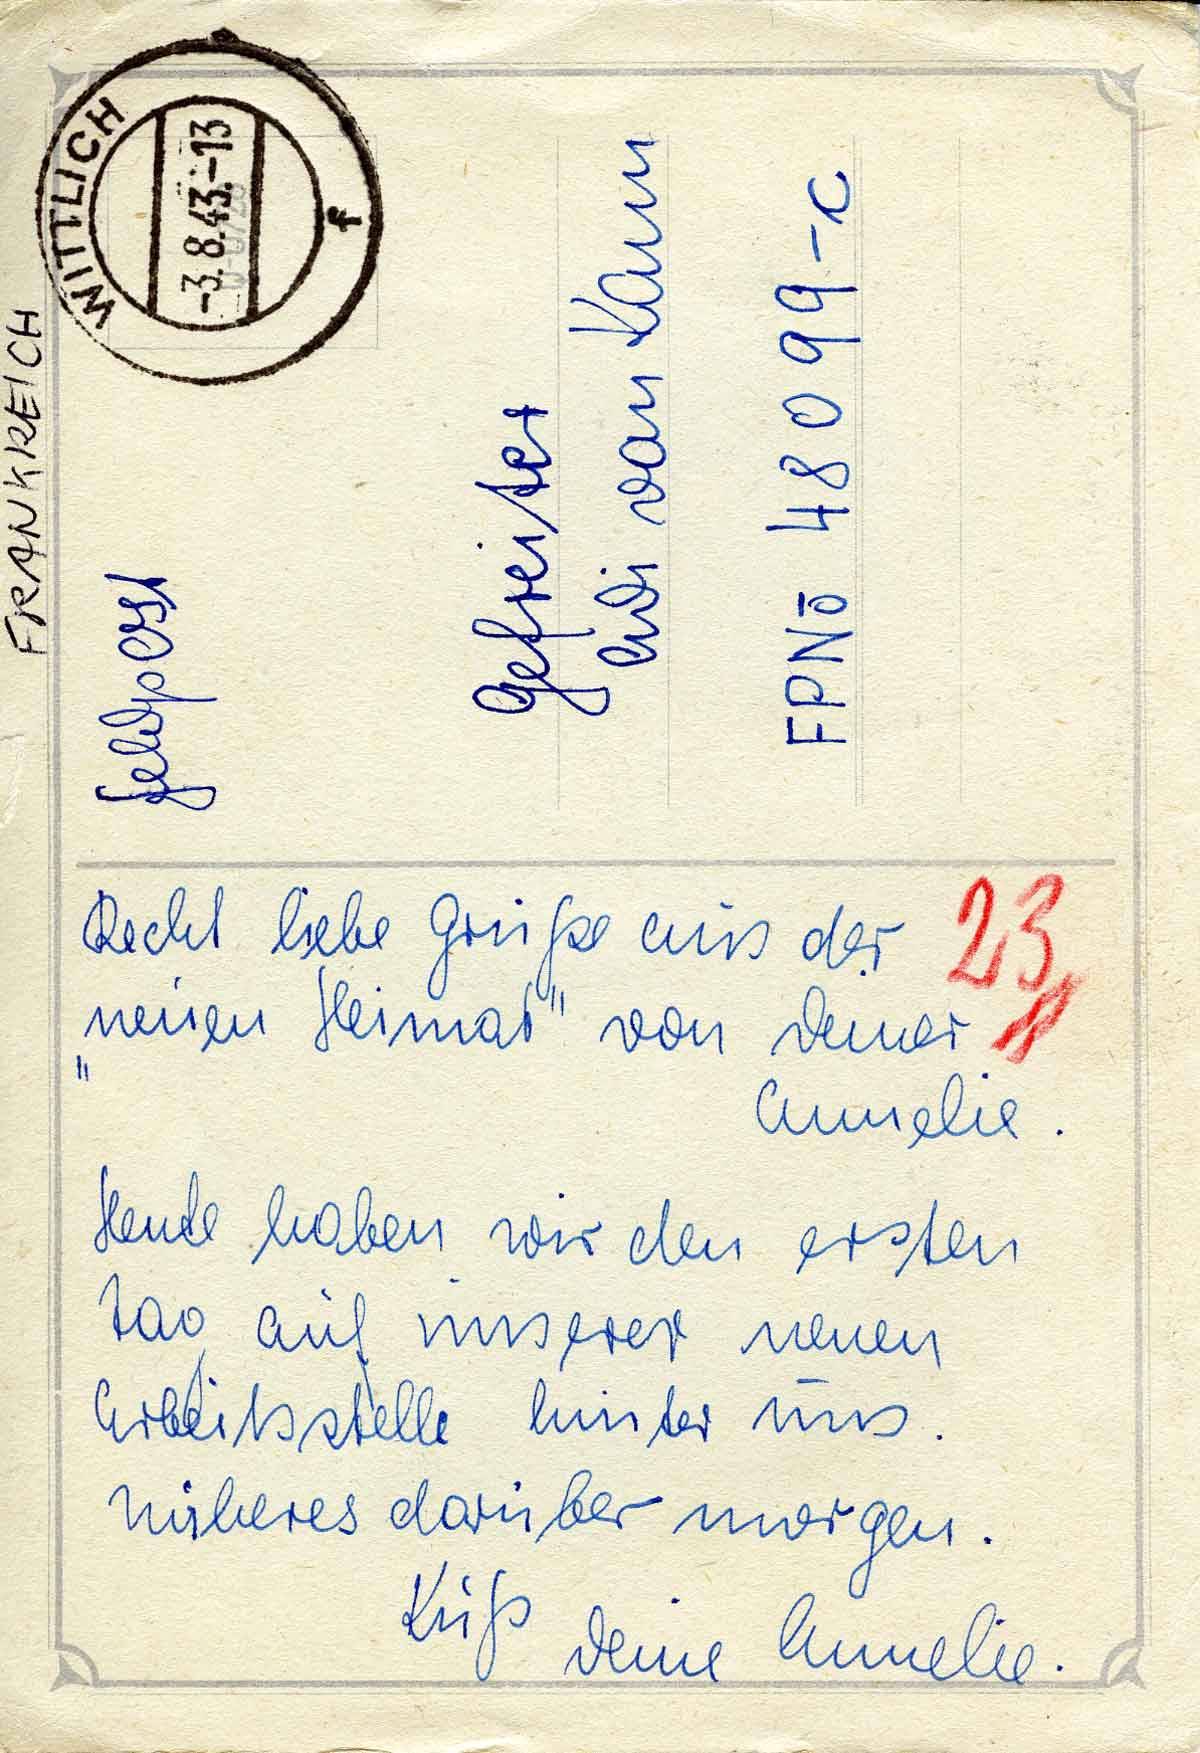 FRANKREICH
WITTLICH
-3.8.43.-13
f
Feldpost
Gefreiter
Edi van Kann
FPNo 48099-C
23
Recht liebe Grüße aus der
"neuen Heimat" von Deiner
Annelie.
Heute haben wir den ersten
Tag auf unserer neuen
Arbeitsstelle hinter uns.
Näheres darüber morgen.
Kuß
Deine Annelie.